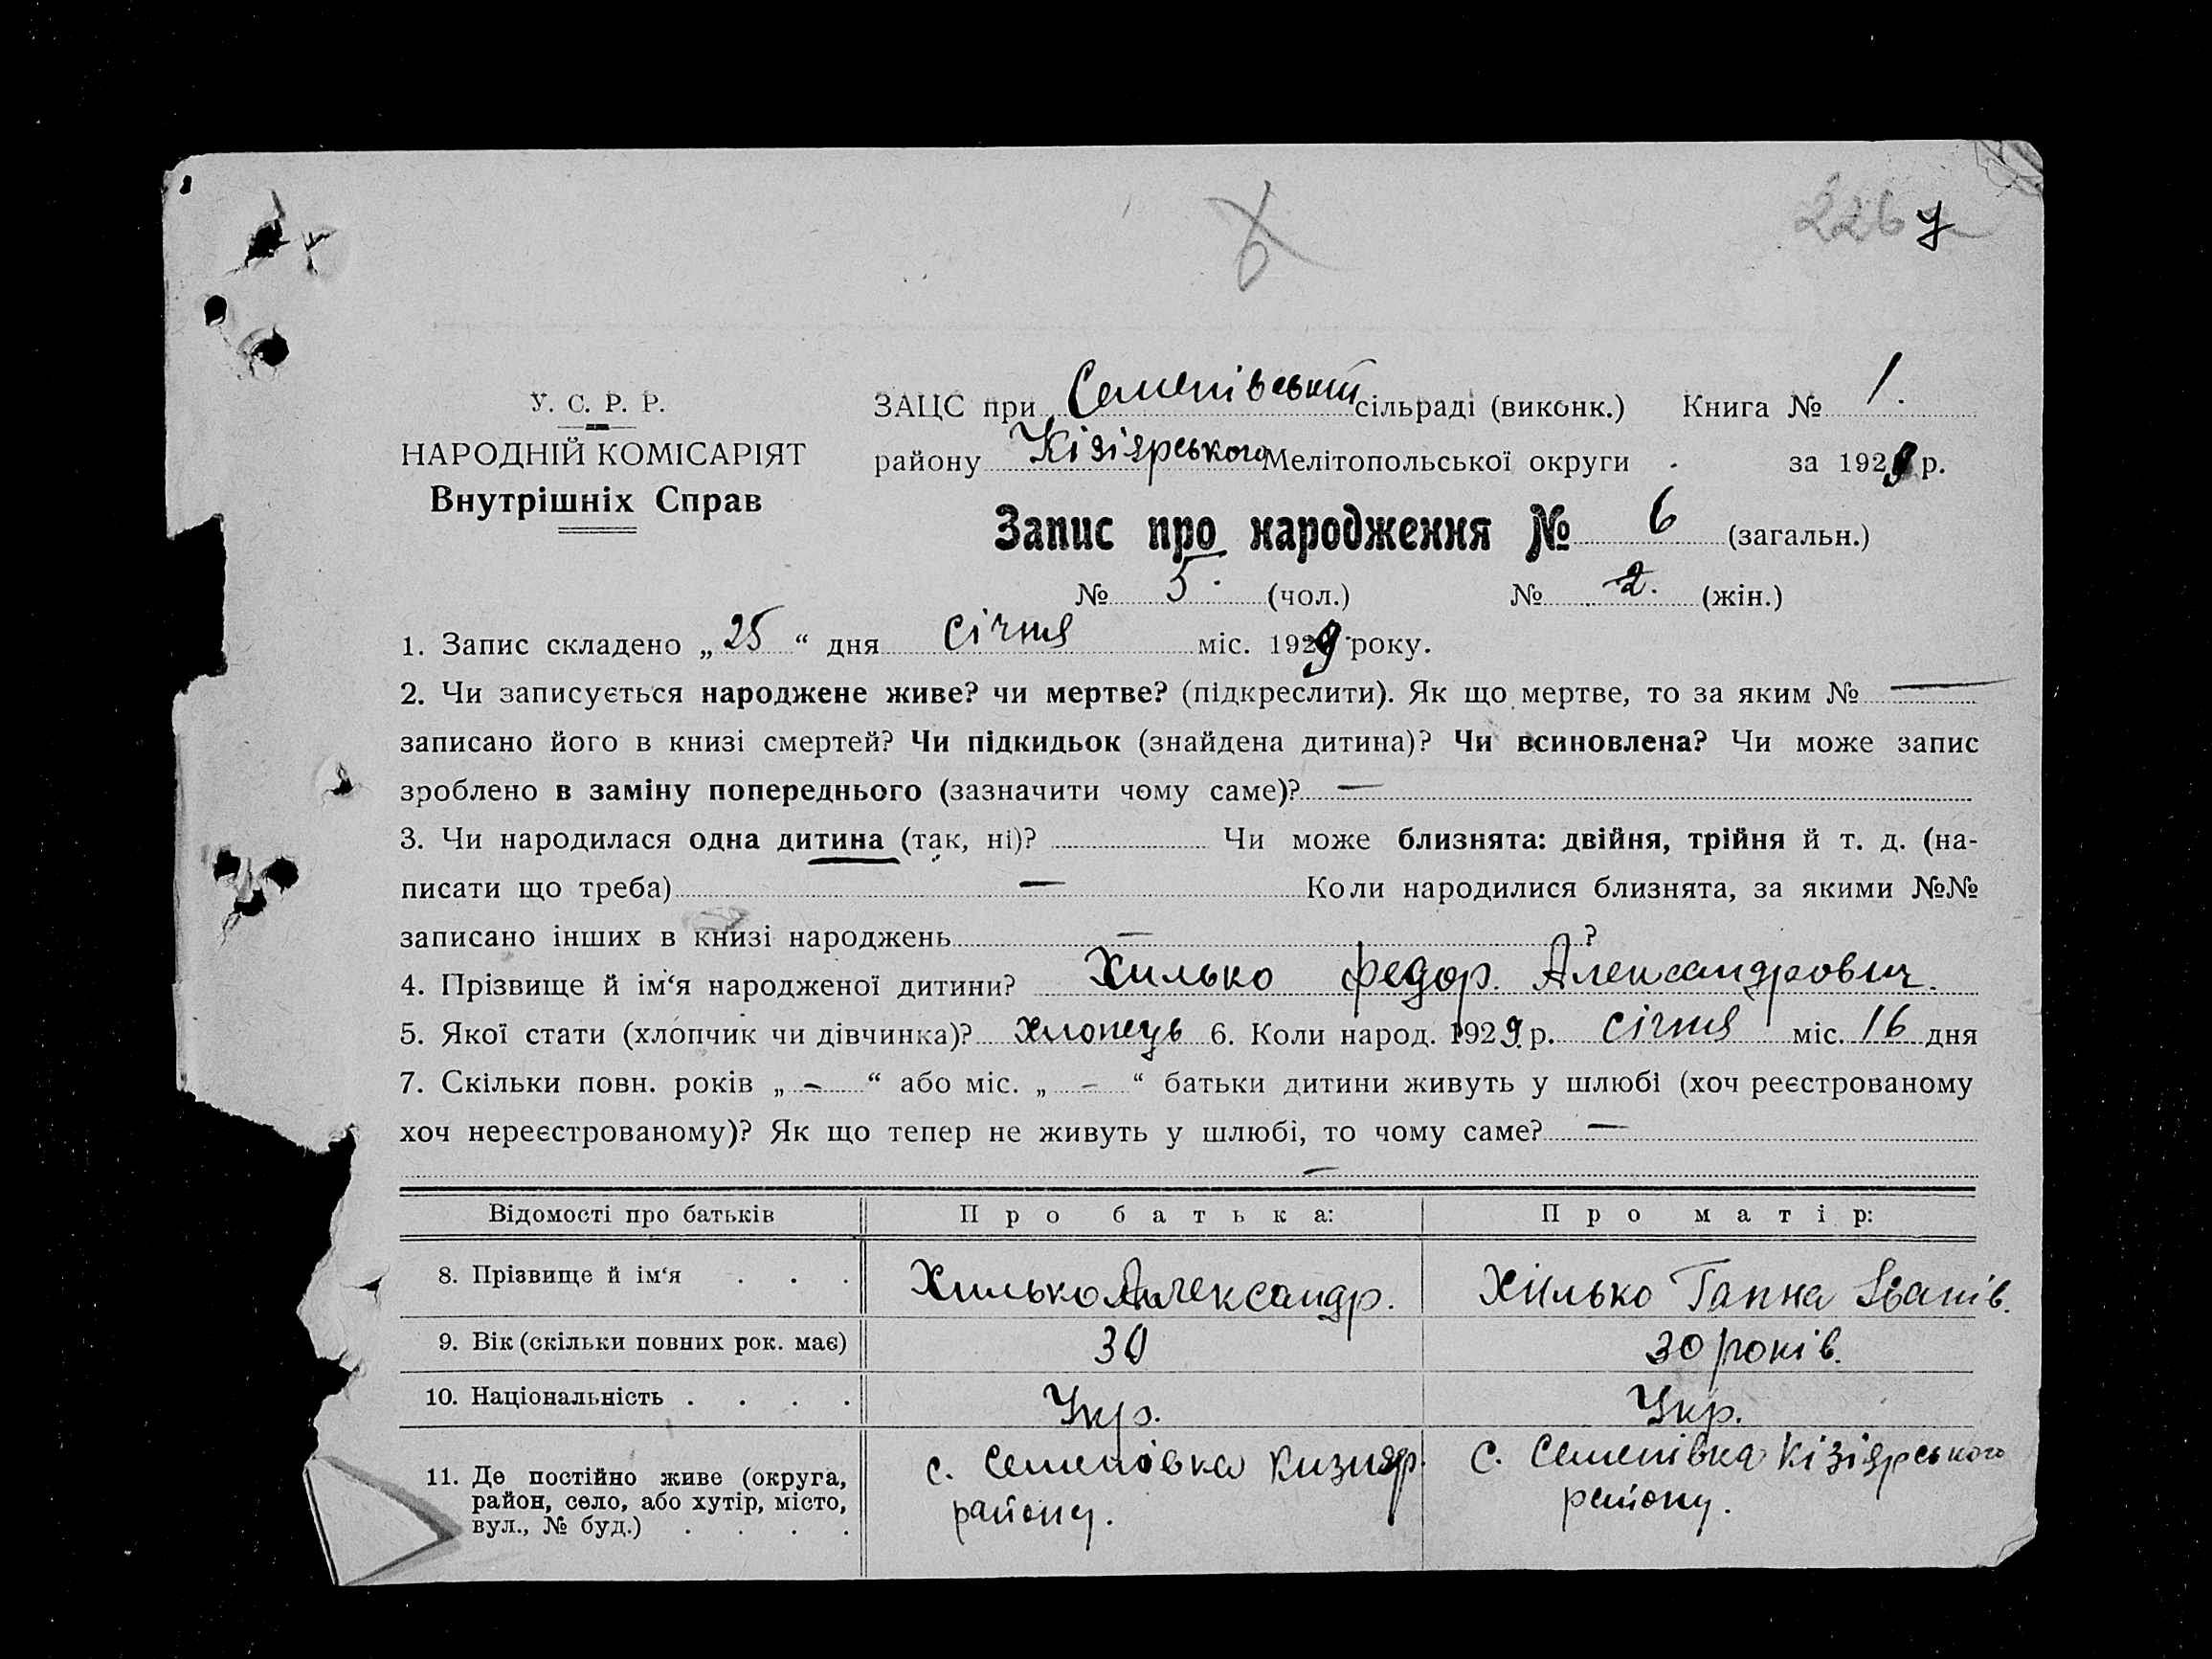 226 7
6
У. С. Р. Р.
НАРОДНІЙ КОМІСАРІЯТ
Внутрішніх Справ
ЗАЦС при Семенівській сільраді (виконк.) Книга № 1.
району Кізіярського Мелітопольської округи . за 1929 р.
Запис про народження № 6 (загальн.)
№ 5. (чол.) № 2. (жін.)
1. Запис складено „ 25 “ дня січня міс. 1929 року.
2. Чи записується народжене живе? чи мертве? (підкреслити). Як що мертве, то за яким № —
записано його в книзі смертей? Чи підкидьок (знайдена дитина)? Чи всиновлена? Чи може запис
зроблено в заміну попереднього (зазначити чому саме)? —
3. Чи народилася одна дитина (так, ні)? Чи може близнята: двійня, трійня й т. д. (на-
писати що треба) — Коли народилися близнята, за якими №№
записано інших в книзі народжень — ?
4. Прізвище й ім‘я народженої дитини? Хилько Федор. Александрович.
5. Якої стати (хлопчик чи дівчинка)? хлопець 6. Коли народ. 1929 р. січня міс. 16 дня
7. Скільки повн. років „ – “ або міс. „ – “ батьки дитини живуть у шлюбі (хоч реєстрованому
хоч нереєстрованому)? Як що тепер не живуть у шлюбі, то чому саме? —
—
Відомості про батьків Про батька: Про матір:
8. Прізвище й ім‘я . . . Хилько Александр. Хілько Ганна Іванів.
9. Вік (скільки повних рок. має) 30 30 років.
10. Національність . . . . Укр. Укр.
11. Де постійно живе (округа, район, село, або хутір, місто, вул., № буд.) . . . . с. Семеновка Кизияр. району. с. Семенівка Кізіярського району.